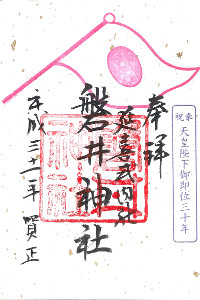 奉祝 天皇陛下御即位三十年
奉拝
延喜式内社
磐井神社
平成三十一年 正